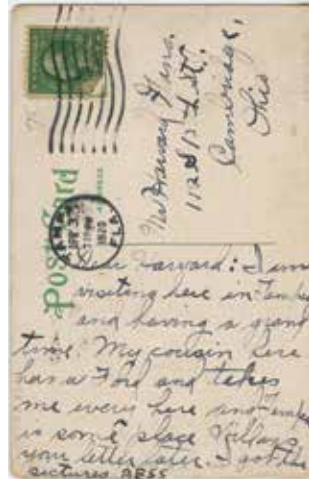 Post Card
TAMPA
FLA
1920
Mr Harvard
112 S 13 St.
Cambridge,
Ohio
Dear Harvard: I am
visiting here in Tampa
and having a grand
time. My cousin here
has a Ford and takes
me every here and Tampa
is some place
your letter later. I got the
pictures